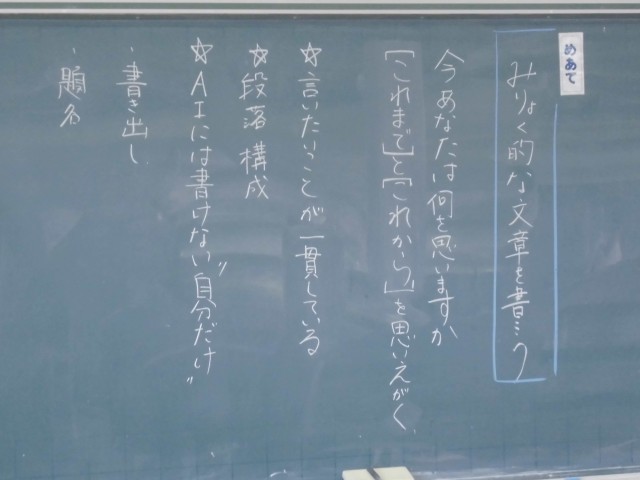 めあて
みりょく的な文章を書こう
今あなたは何を思いますか
「これまで」と「これから」を思いえがく
☆言いたいことが一貫している
☆段落構成
☆AIには書けない"自分だけ"
・書き出し
・題名